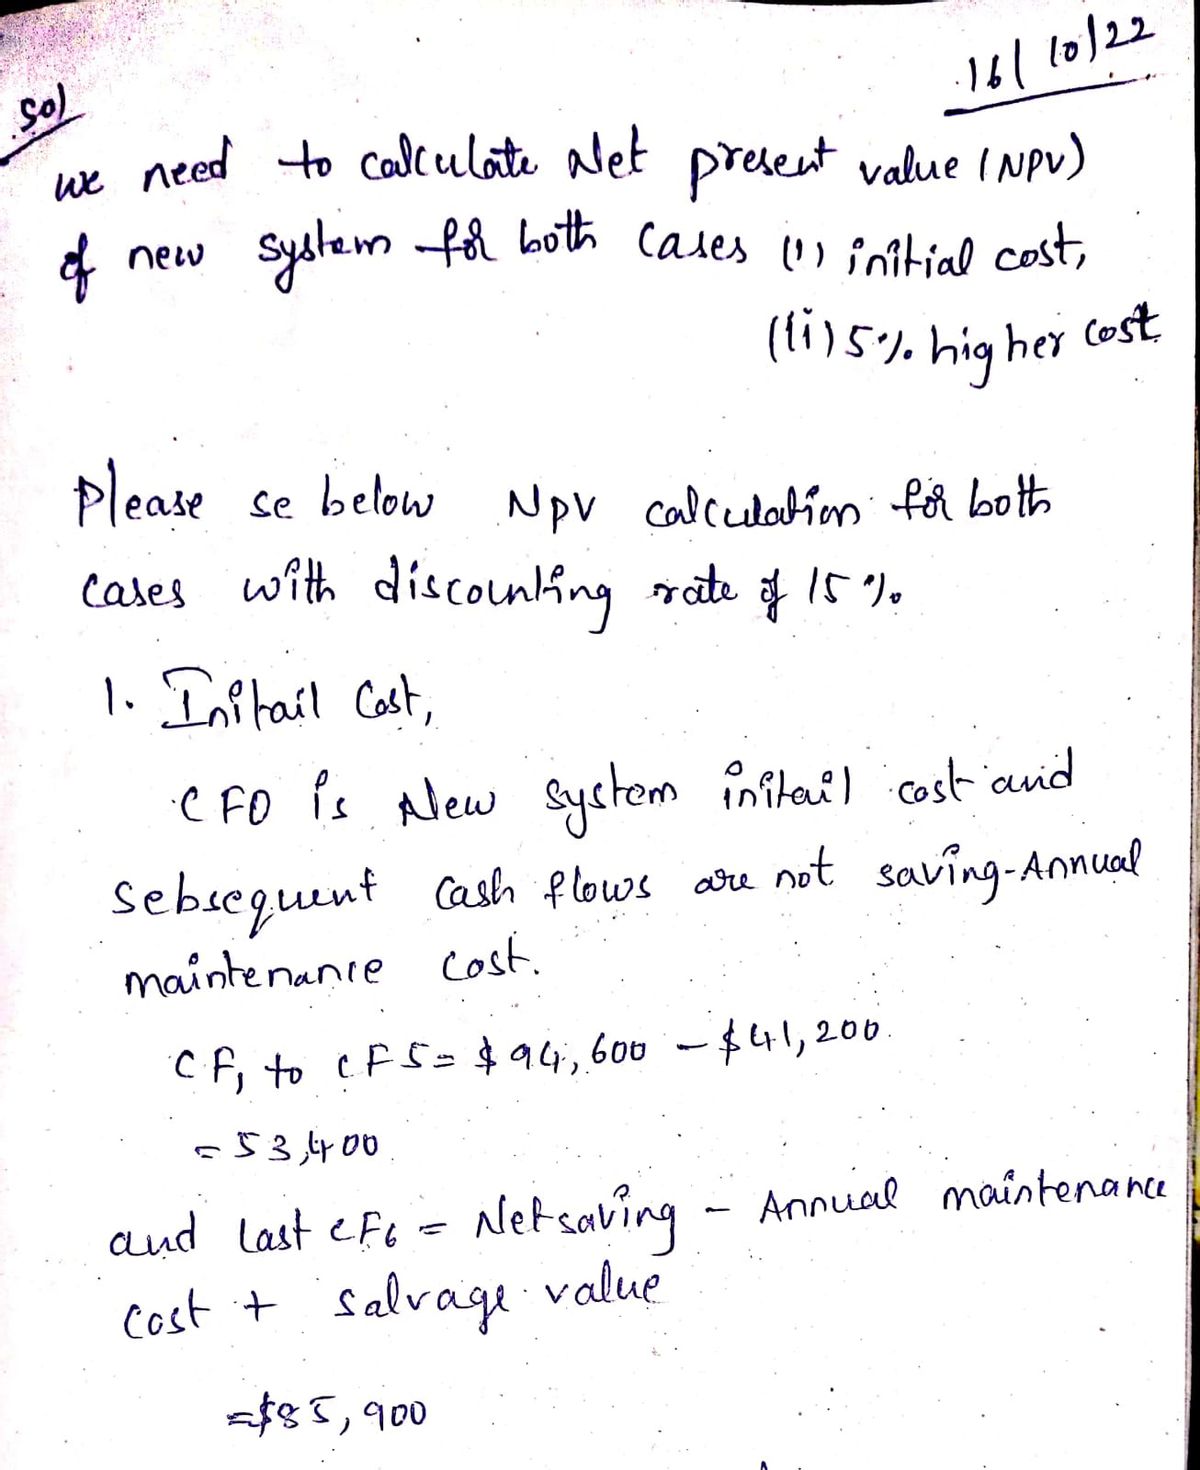 16/10/22
Sol
we need to calculate Net present value (NPV)
of new system for both cases (i) initial cost,
(ii) 5% higher cost
Please se below NPV calculation for both
cases with discounting rate of 15%
1. Initail Cost,
CF0 is New system initail cost and
Sebsequent Cash flows are not saving-Annual
maintenance cost.
CF1 to CF5 = $94,600 - $41,200
= 53,400
and last CF6 = Net saving - Annual maintenance
cost + salvage value
=$85,900